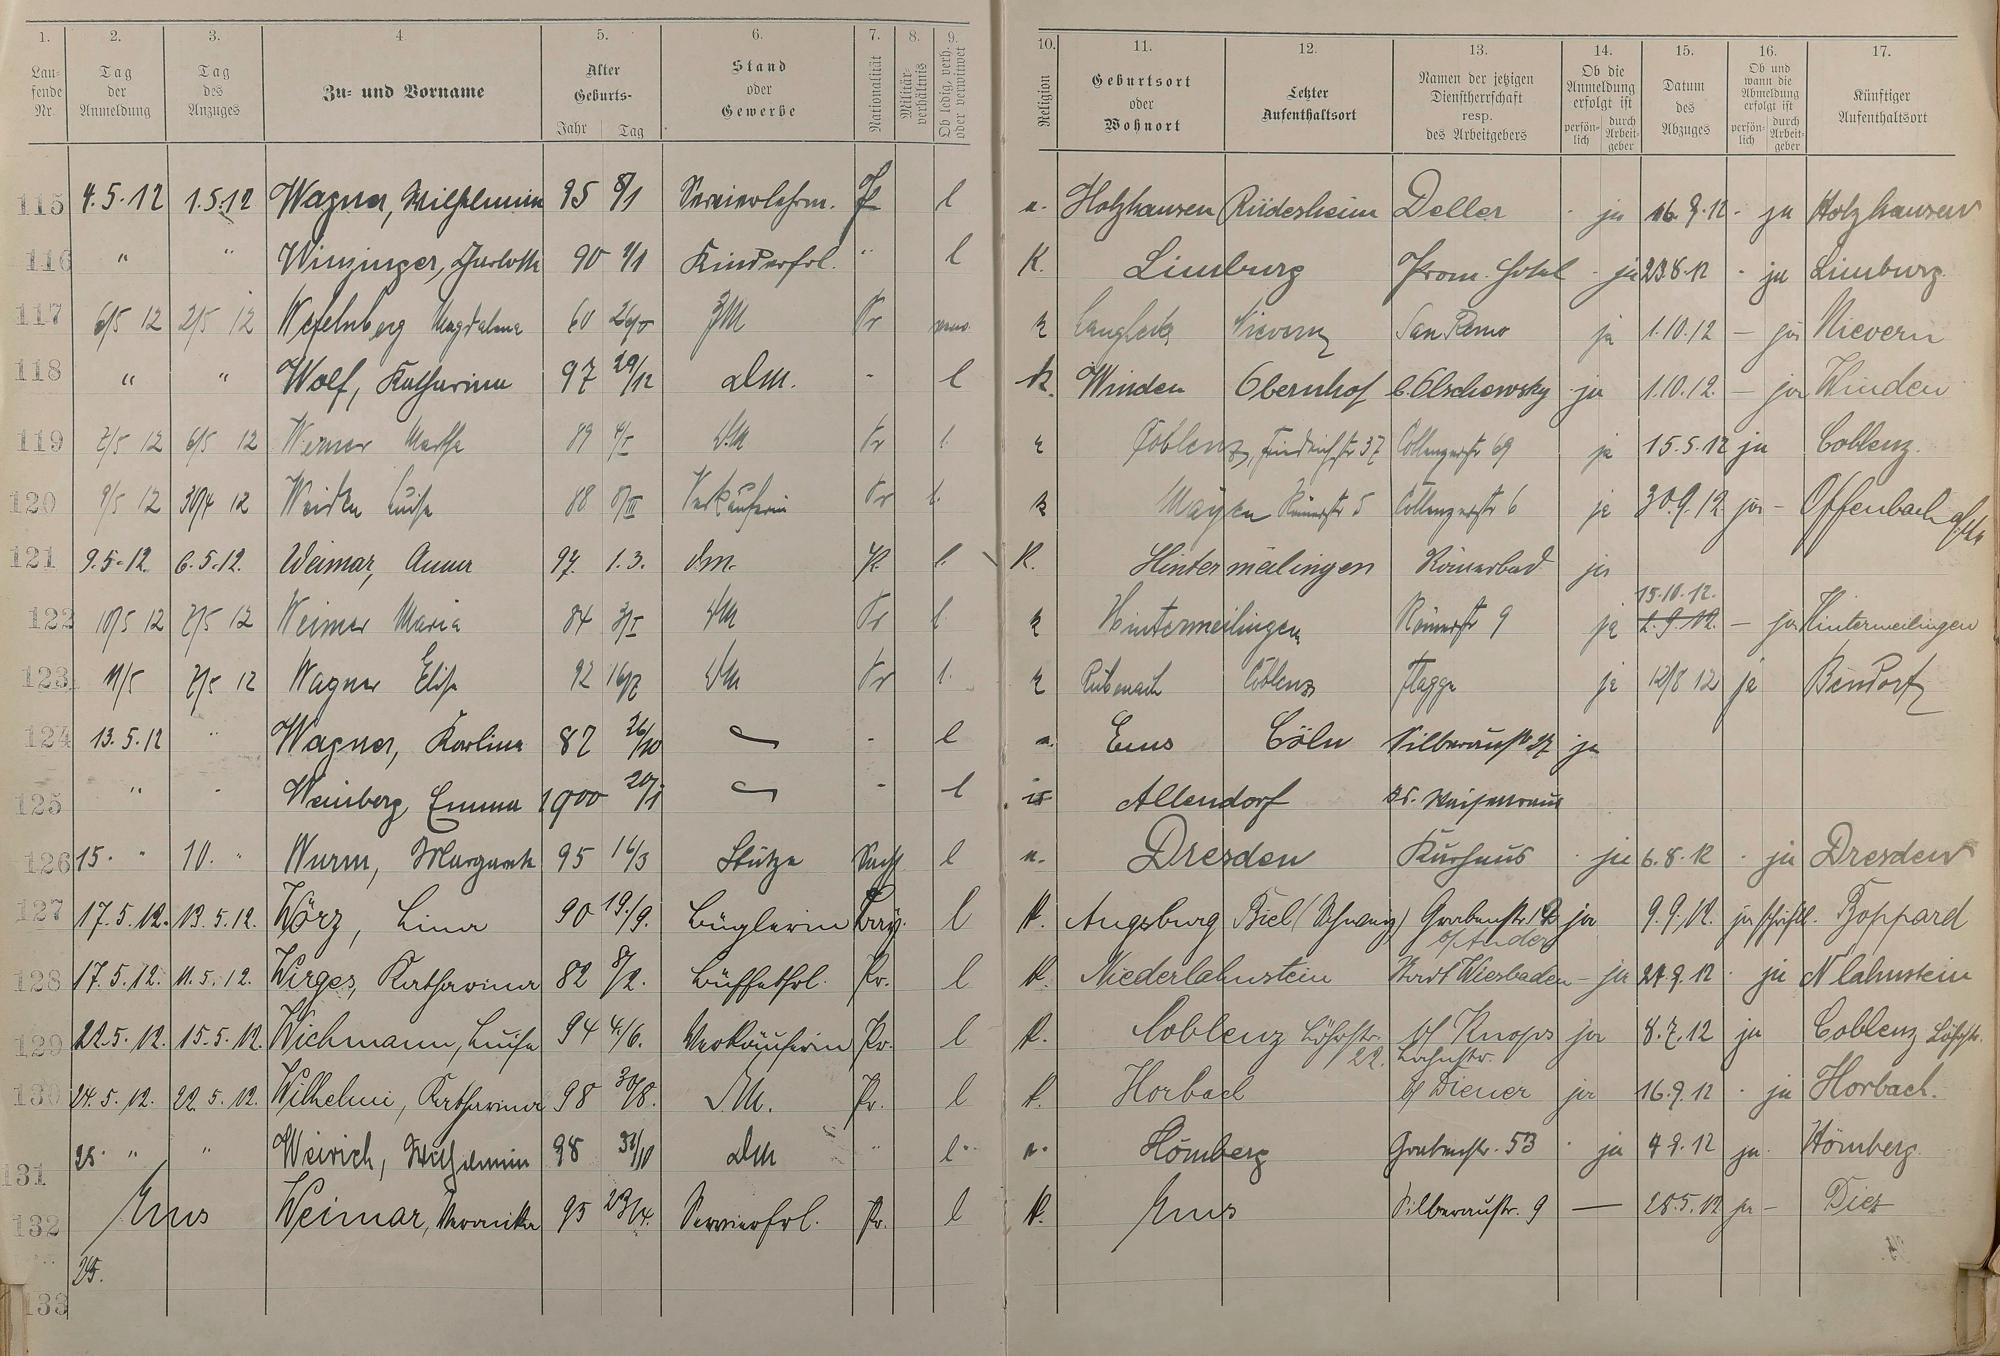 1. 2. 3. 4 5. 6. 7. 8. 9. 10. 11. 12. 13. 14. 15. 16. 17.
Lau-fende Nr. Tag der Anmeldung Tag des Anzuges Zu- und Vorname Alter Geburts- Jahr Tag Stand oder Gewerbe Nationalität Militär-verhältnis Ob ledig, verh. oder verwitwet Religion Geburtsort oder Wohnort Letzter Aufenthaltsort Namen der jetzigen Dienstherrschaft resp. des Arbeitgebers Ob die Anmeldung erfolgt ist persön-lich durch Arbeit-geber Datum des Abzuges Ob und wann die Abmeldung erfolgt ist persön-lich durch Arbeit-geber Künftiger Aufenthaltsort
115 4.5.12 1.5.12 Wagner, Wilhelmine 95 8/1 l Holzhausen Rüdesheim Deller ja 16.9.12 - ja Holzhausen
116 " " Winzinger, 90 Kinderfrl. " l K. Limburg Prom. Hotel ja 23.8.12 - ja Limburg.
117 6/5 12 2/5 12 Magdalena 60 Pr Nievern San Remo ja 1.10.12 — ja Nievern
118 " " Wolf, Katharina 97 29/12 DM. - l K. Winden Obernhof ja 1.10.12. — ja Winden
119 7/5 12 6/5 12 Werner Martha 89 DM Pr l. Coblenz, Friedrichstr 37 Coblenzerstr 69 ja 15.5.12 ja Coblenz.
120 9/5 12 30/4 12 Luise 88 8/III Verkäuferin Pr l. k Mayen 5 Coblenzerstr 6 ja 30.9.12 ja - Offenbach
121 9.5.12. 6.5.12. Weimar, Anna 97 1.3. DM. Pr. l. K. Hintermeilingen Römerbad ja
122 10/5 12 7/5 12 Weimer Maria 84 DM Pr l. Hintermeilingen Römerstr 9 ja 15.10.12. — ja Hintermeilingen
123 11/5 7/5 12 Wagner Elise 92 16/7 DM Pr l. Rübenach Coblenz Flagge ja 12/8 12 ja Bendorf
124 13.5.12 " Wagner, Karlina 87 26/10 - l Ems Cöln Silberaustr 27 ja
125 " - Weinberg, Emma 1900 20/1 - l Allendorf
126 15. " 10. " Wurm, 95 16/3 Stütze l Dresden Kurhaus ja 6.8.12 - ja Dresden
127 17.5.12. 13.5.12. Wörz, Lina 90 19./9. Büglerin Bay. l K. Augsburg Biel (Schweiz) Grabenstr. ja 9.9.12. ja schriftl. Boppard
128 17.5.12. 11.5.12. Wirges, Katharina 82 8/2. Büffetfrl. Pr. l K. Niederlahnstein Stadt Wiesbaden - ja 27.9.12 - ja N lahnstein
129 22.5.12. 15.5.12. Wichmann, Luise 94 4./6. Verkäuferin Pr. l K. Coblenz Löhrstr. 22. b/ Knops Lahnstr. ja 8.7.12 ja Coblenz Löhrstr.
130 24.5.12. 22.5.12. Wilhelmi, Katharina 98 30/8. D.M. Pr. l K. Horbach b/ Diener ja 16.9.12 - ja Horbach.
131 25. " " Weirich, Wilhelmin 98 31/10 DM " l Hömberg Grabenstr. 53 - ja 4 9.12 ja. Hömberg.
132 Ems Weimar, Veronika 95 23/4. Servierfrl. Pr. l K. Ems Silberaustr. 9 — 28.5.12 ja - Diez
25.
133